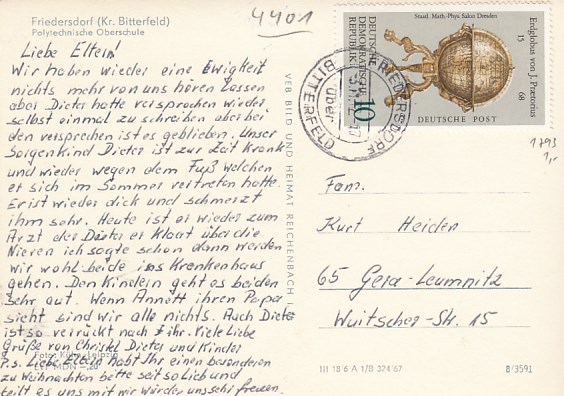 4401
Friedersdorf (Kr. Bitterfeld)
Polytechnische Oberschule
Liebe Eltern!
Wir haben wieder eine Ewigkeit
nichts mehr von uns hören lassen
aber Dieter hatte versprochen wieder
selbst einmal zu schreiben aber bei
den versprechen ist es geblieben. Unser
Sorgenkind Dieter ist zur Zeit Krank
und wieder wegen dem Fuß welchen
er sich im Sommer vertreten hatte.
Er ist wieder dick und schmerzt
ihm sehr. Heute ist er wieder zum
Arzt der Dieter er Klagt über die
Nieren ich sagte schon dann werden
wir wohl beide ins Krankenhaus
gehen. Den Kindern geht es beiden
sehr gut. Wenn Annett ihren Papa
sieht sind wir alle nichts. Auch Dieter
ist so verrückt nach ihr. Viele Liebe
Grüße von Christel Dieter und Kinder
P.s. Liebe Eltern habt Ihr einen besonderen
zu Weihnachten bitte seit so Lieb und
teilt es uns mit wir würden uns sehr freuen.
Foto: Kühn, Leipzig
EVP MDN -,20
VEB BILD UND HEIMAT REICHENBACH I. V.
Staatl. Math.-Phys. Salon Dresden
Erdglobus von J. Praetorius
15 68
DEUTSCHE DEMOKRATISCHE REPUBLIK
10
DEUTSCHE POST
FRIEDERSDORF
über
BITTERFELD
1793
1,-
Fam.
Kurt Heiden
65 Gera-Leumnitz
Str. 15
III 18 6 A 1/B 324/67
8/3591